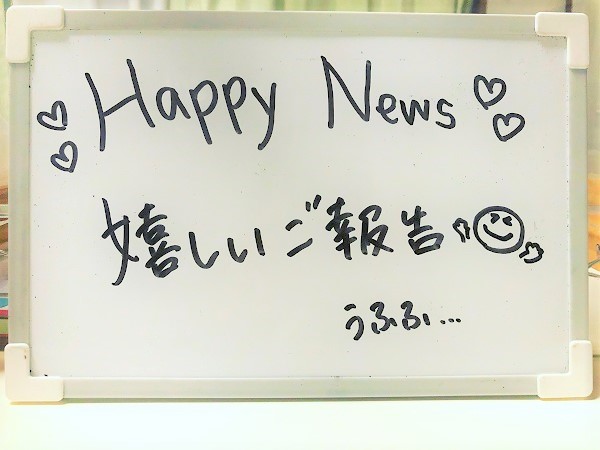 Happy News
嬉しいご報告
うふふ...